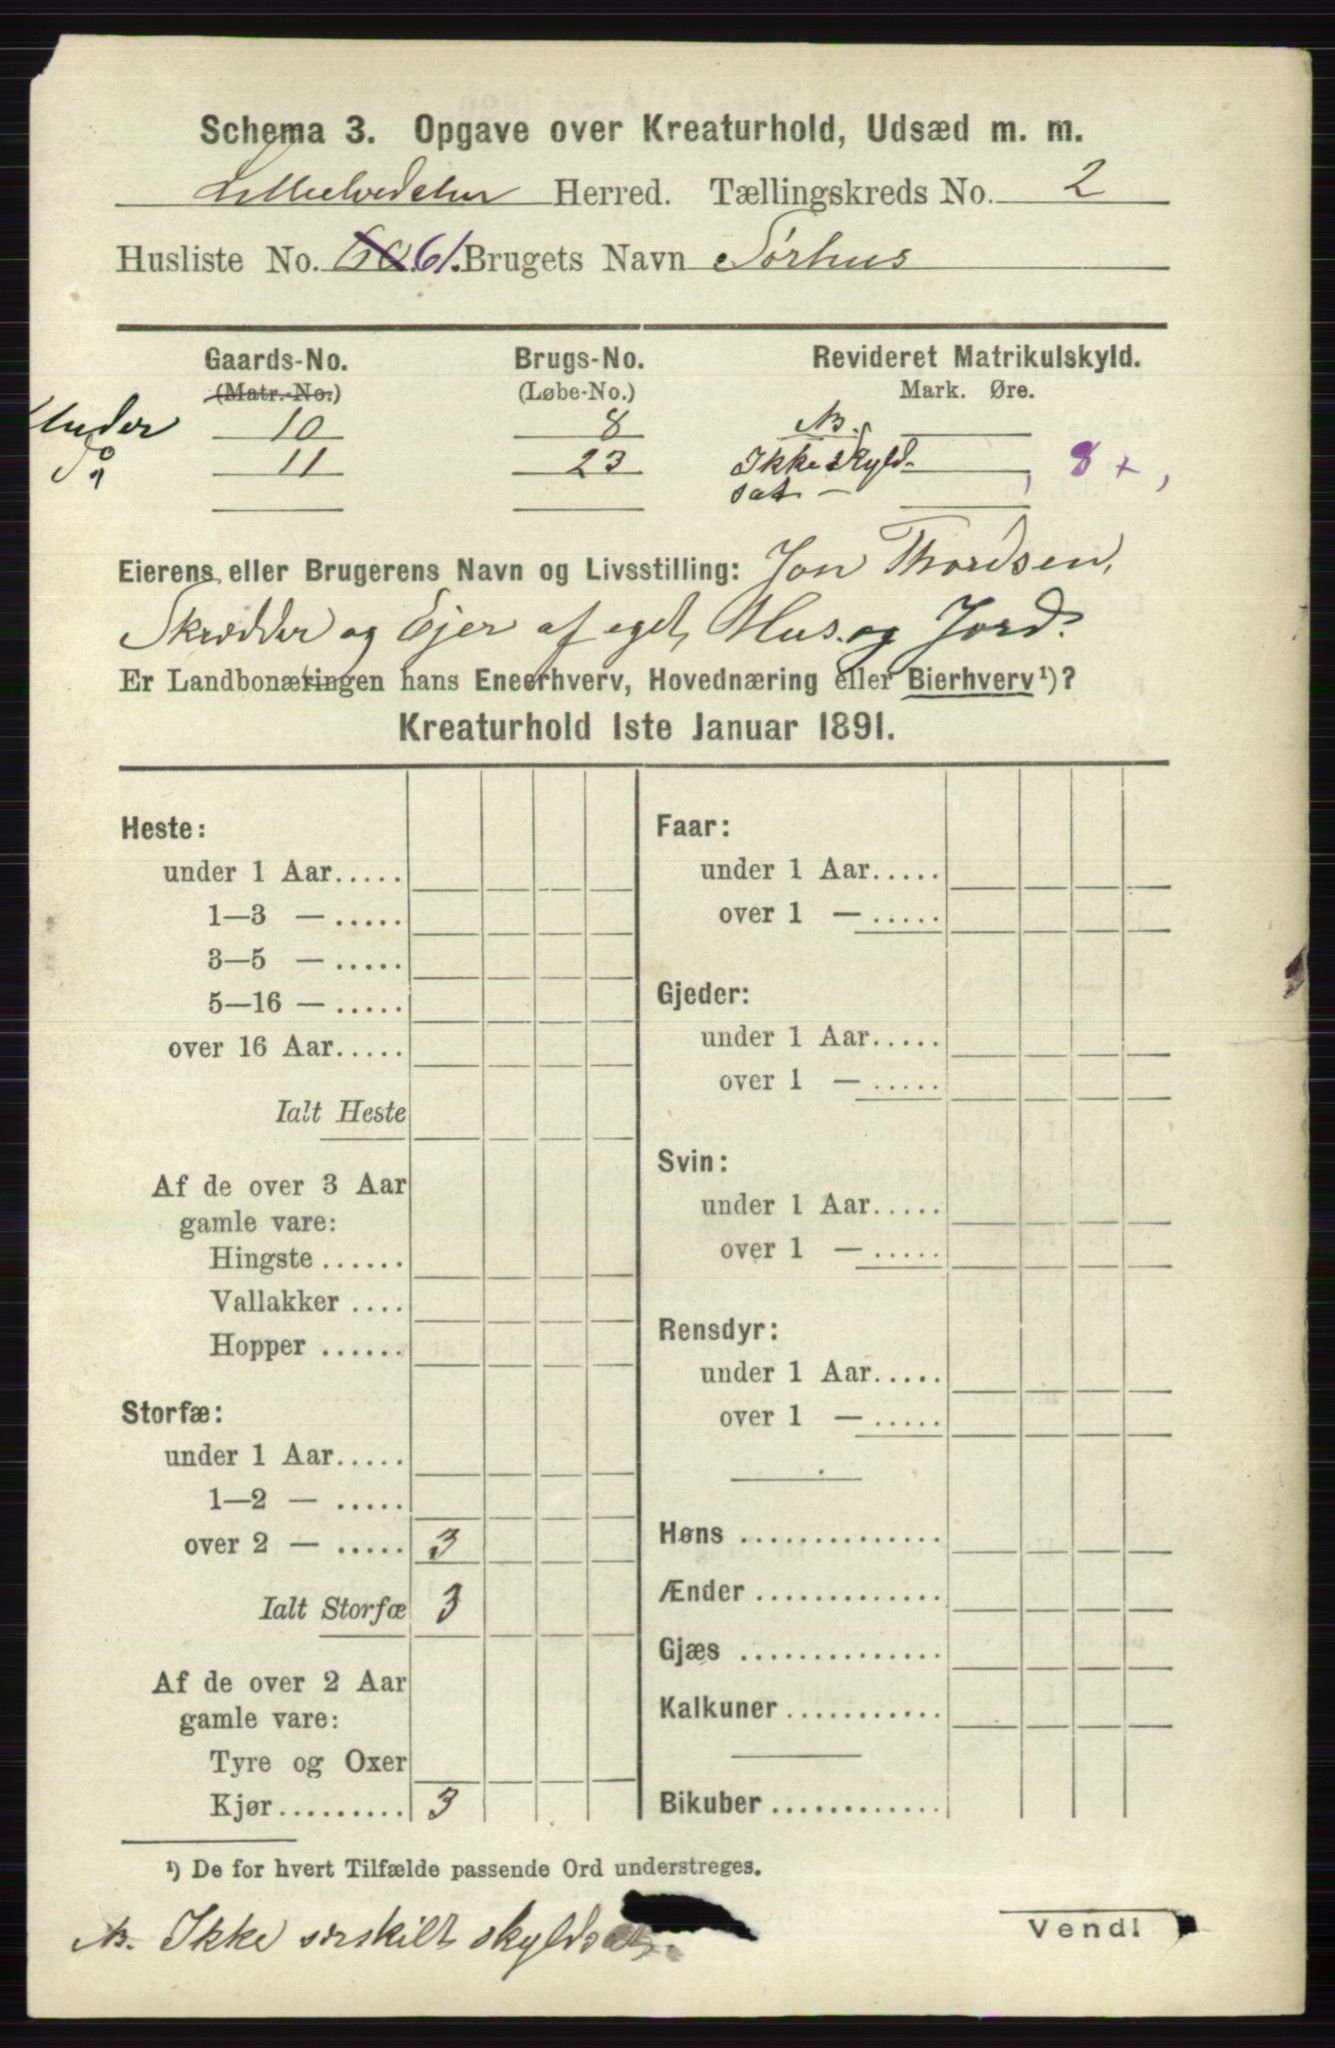 Schema 3. Opgave over Kreaturhold, Udsæd m. m.
Lilleelvedalen Herred. Tællingskreds No. 2
Husliste No. 60. 61. Brugets Navn Sørhus
Gaards-No. Brugs-No. Revideret Matrikulskyld.
(Matr.-No.) (Løbe-No.) Mark. Øre.
Under 10 8 NB.
Do 11 23 Ikke skyld- 8 +
sat -
Eierens eller Brugerens Navn og Livsstilling: Jon Thordsen,
Skrædder og Ejer af eget Hus og Jord.
Er Landbonæringen hans Eneerhverv, Hovednæring eller Bierhverv¹)?
Kreaturhold 1ste Januar 1891.
Heste:
under 1 Aar.....
1—3 — .....
3—5 — .....
5—16 — .....
over 16 Aar.....
Ialt Heste
Af de over 3 Aar
gamle vare:
Hingste ......
Vallakker ....
Hopper ......
Storfæ:
under 1 Aar.....
1—2 — .....
over 2 — ..... 3
Ialt Storfæ 3
Af de over 2 Aar
gamle vare:
Tyre og Oxer
Kjør......... 3
Faar:
under 1 Aar.....
over 1 — .....
Gjeder:
under 1 Aar.....
over 1 — .....
Svin:
under 1 Aar.....
over 1 — .....
Rensdyr:
under 1 Aar.....
over 1 — .....
Høns ..............
Ænder .............
Gjæs ..............
Kalkuner ...........
Bikuber ............
¹) De for hvert Tilfælde passende Ord understreges.
NB. Ikke særskilt skyldsat.
Vend!